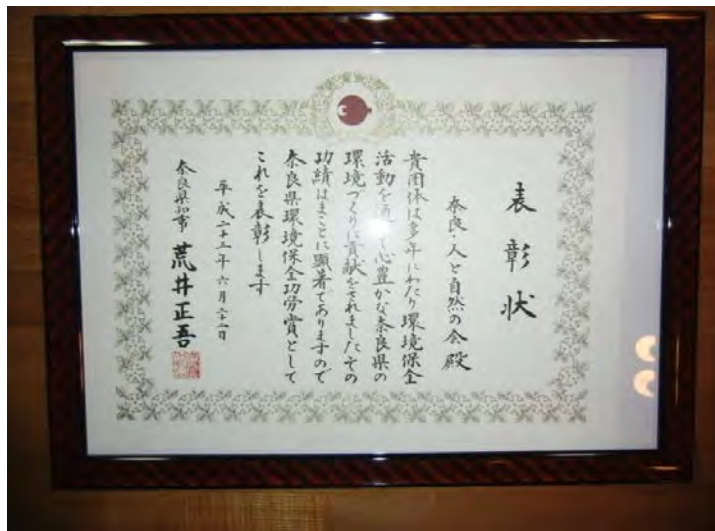 表彰状
奈良・人と自然の会殿
貴団体は多年にわたり環境保全
活動を通して心豊かな奈良県の
環境づくりに貢献をされましたその
功績はまことに顕著でありますので
奈良県環境保全功労賞として
これを表彰します
平成二十三年六月二十二日
奈良県知事 荒井正吾